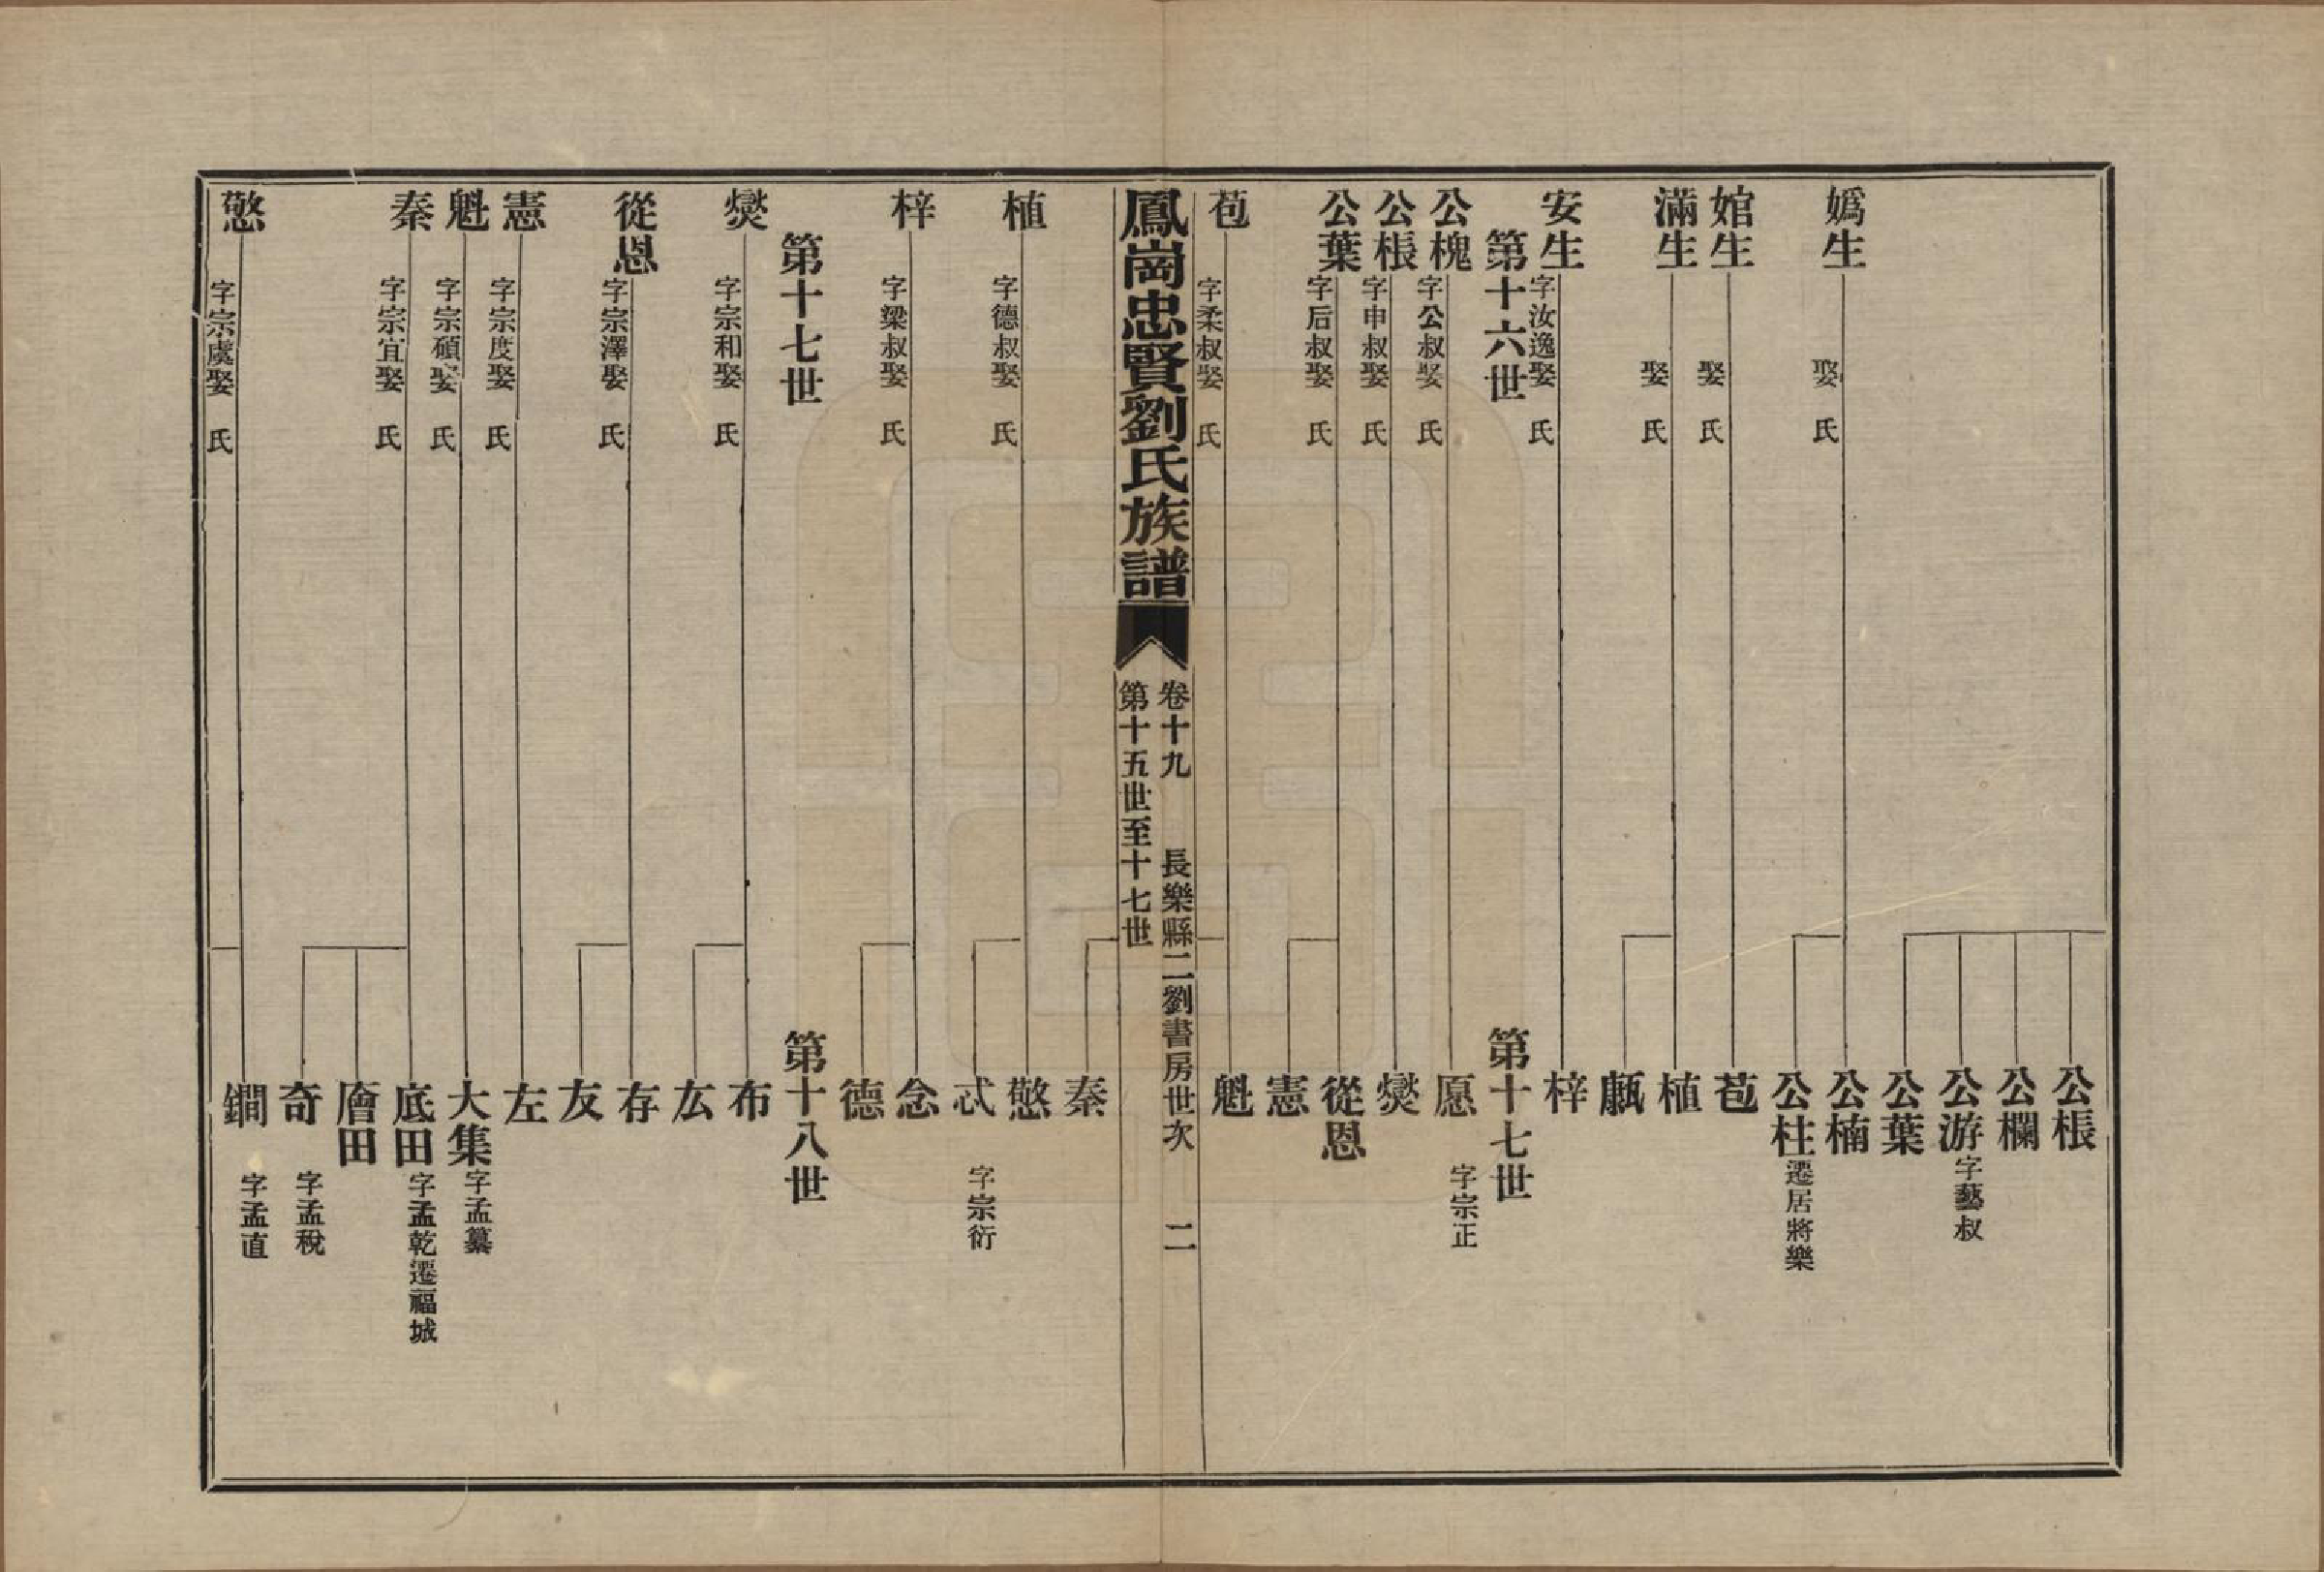 公棖
公欄
公游 字藝叔
公葉
嬀生 娶 氏 公楠
公柱 遷居將樂
婠生 娶 氏 苞
滿生 娶 氏 植
安生 字汝逸娶 氏 梓
第十六世 第十七世
公槐 字公叔娶 氏 愿 字宗正
公棖 字申叔娶 氏 爕
公葉 字后叔娶 氏 從恩
憲
苞 字柔叔娶 氏 魁
鳳崗忠賢劉氏族譜
卷十九 長樂縣二劉書房世次 二
第十五世至十七世
秦
植 字德叔娶 氏 憼
忒 字宗衍
梓 字梁叔娶 氏 念
德
第十七世 第十八世
爕 字宗和娶 氏 布
厷
從恩 字宗澤娶 氏 存
友
憲 字宗度娶 氏 左
魁 字宗碩娶 氏 大集 字孟纂
秦 字宗宜娶 氏 底田 字孟乾遷福城
廥田
奇 字孟稅
憼 字宗虞娶 氏 鐗 字孟直